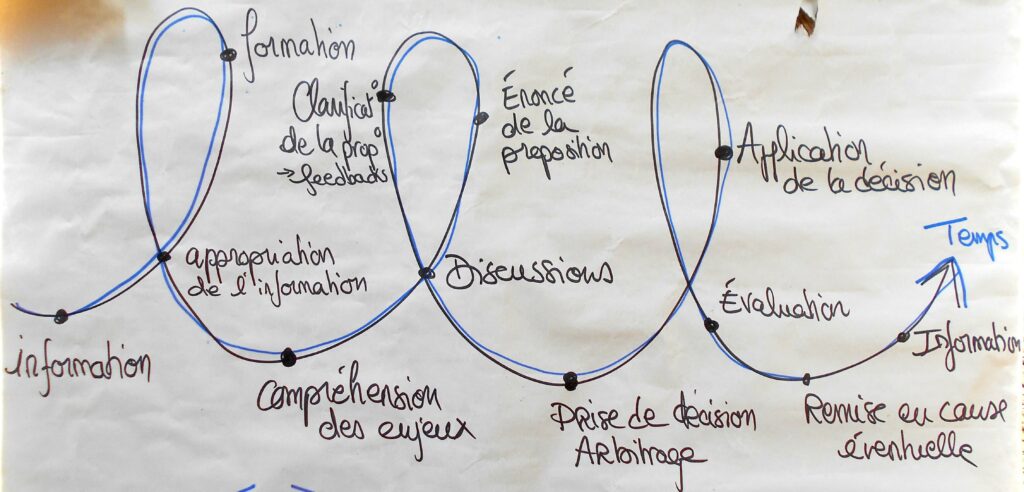 formation
Clarificat°
de la prop°
→ feedbacks
Énoncé
de la
proposition
Application
de la décision
Temps
appropriation
de l'information
Discussions
Évaluation
Information
information
Compréhension
des enjeux
Prise de décision
Arbitrage
Remise en cause
éventuelle